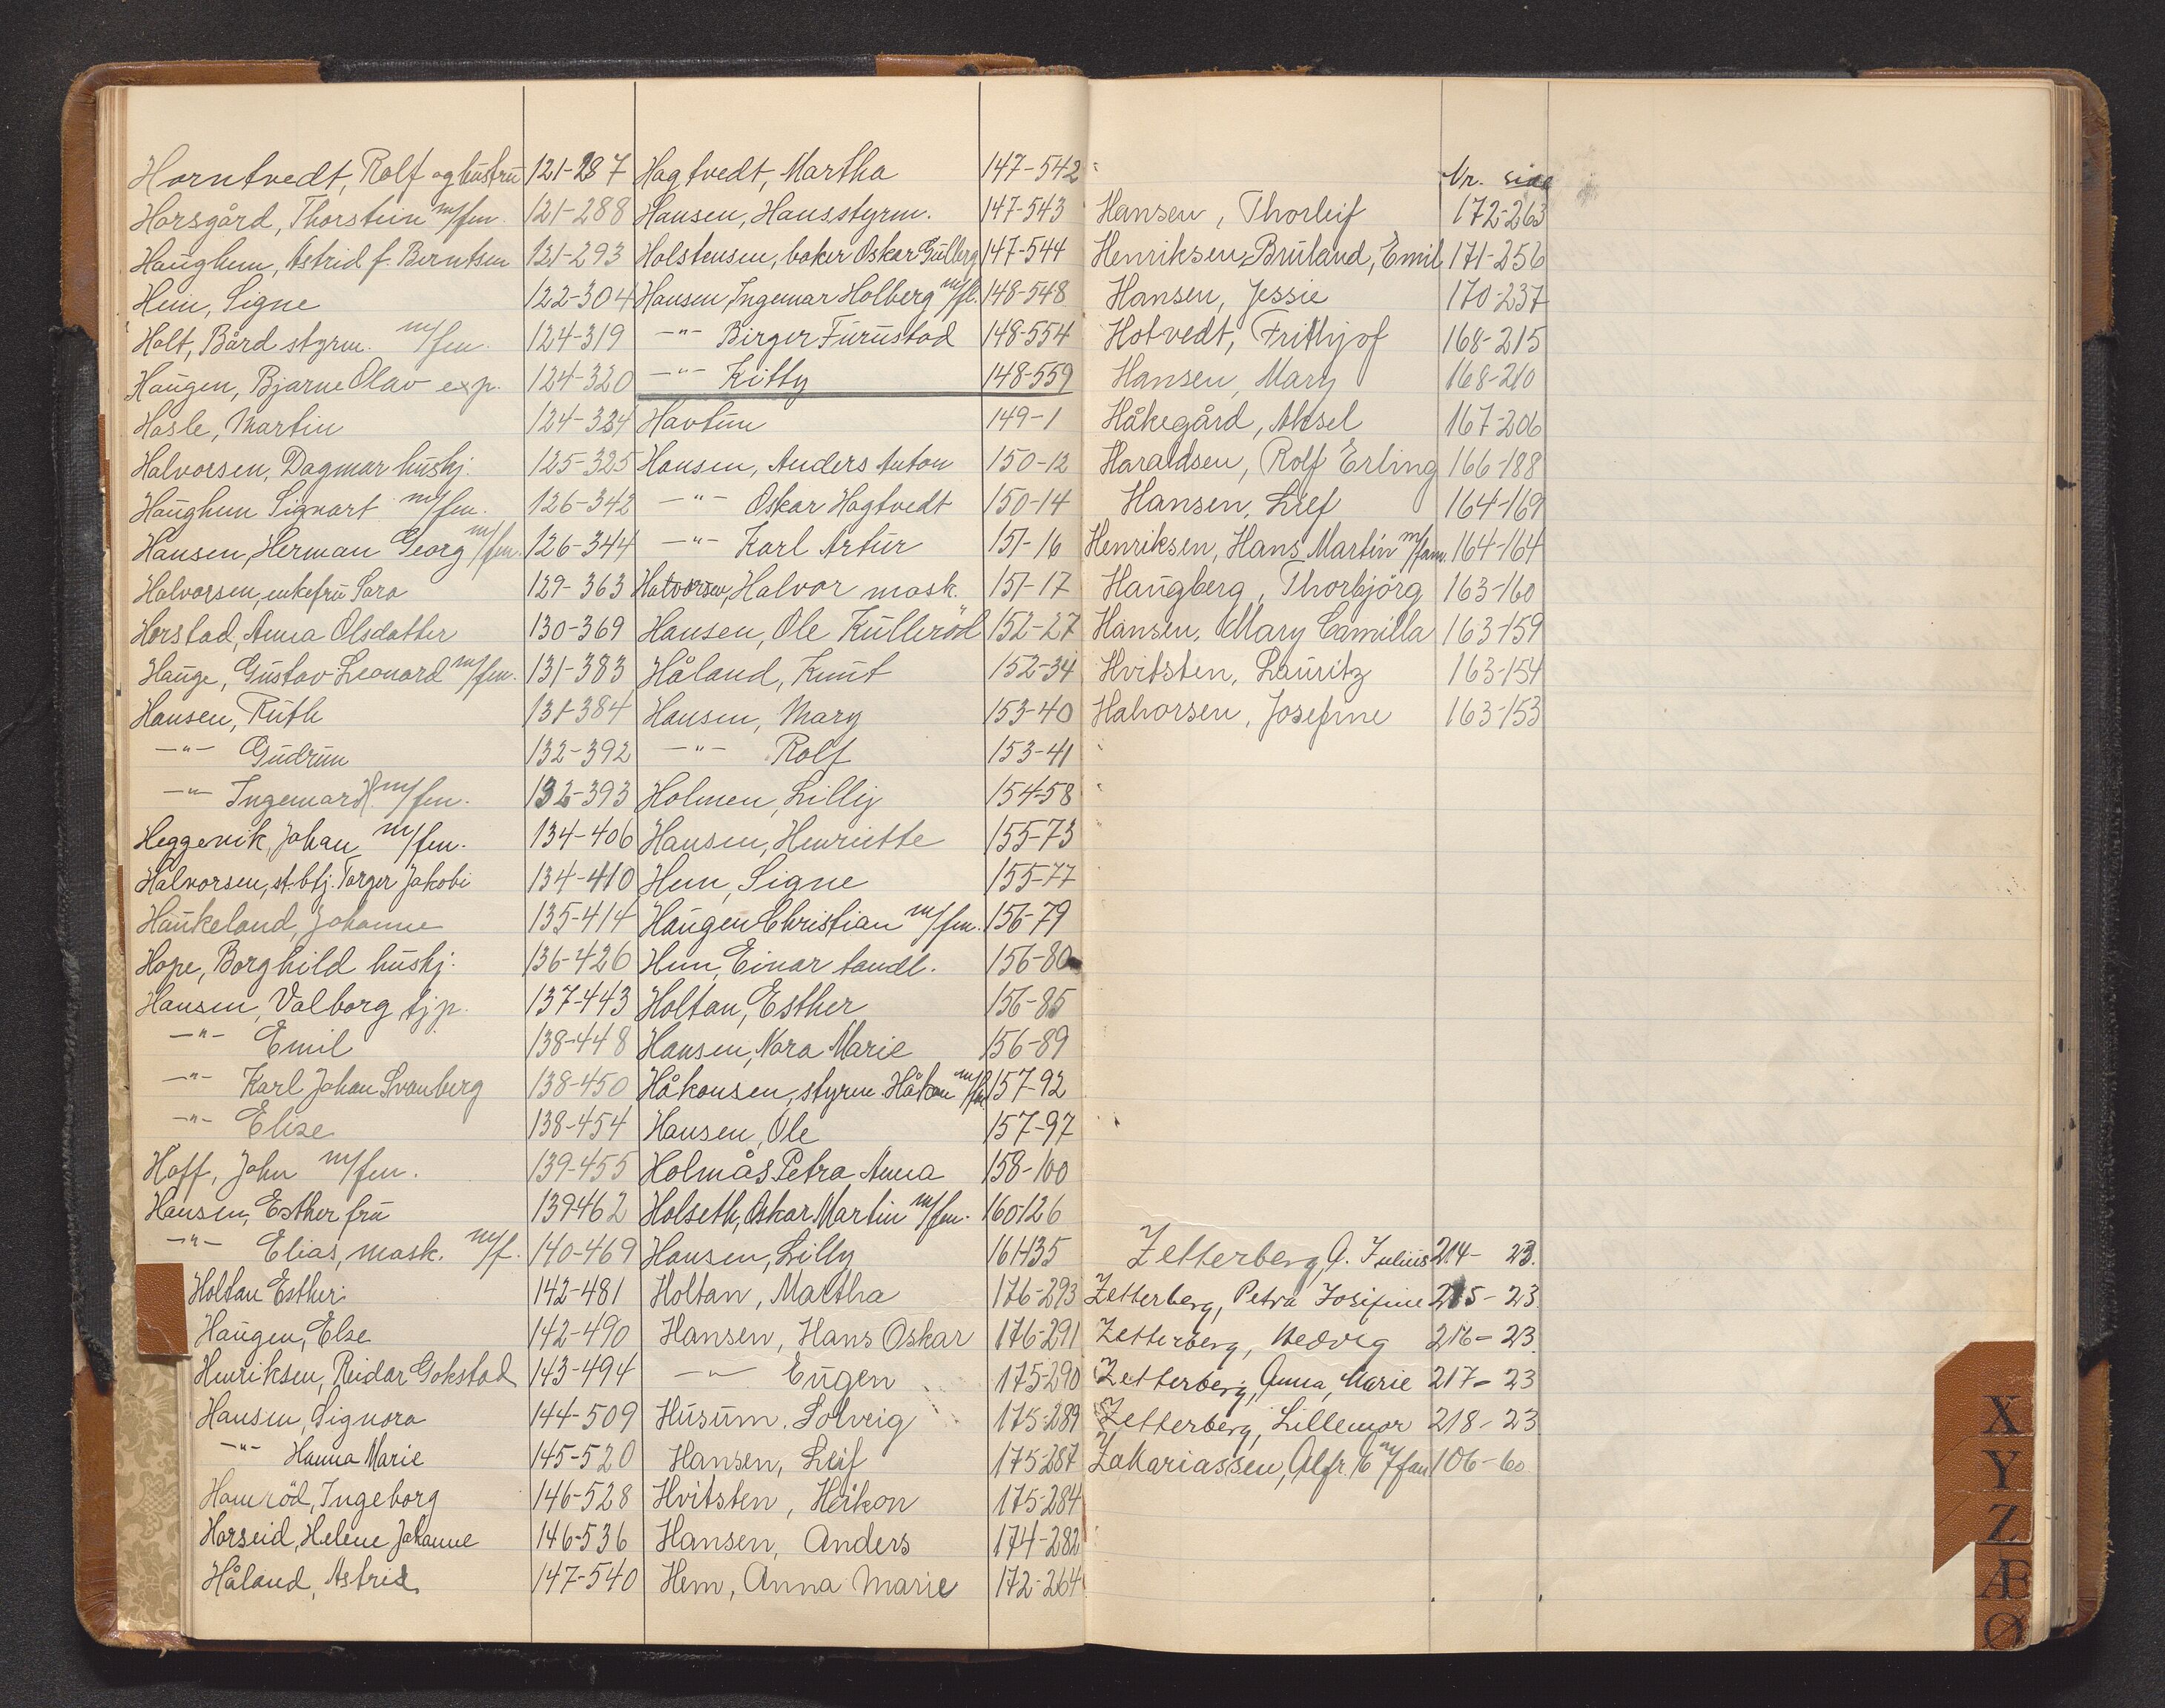 Horntvedt, Rolf og hustru 121-287
Horsgård, Thorstein m/fm. 121-288
Haughem, Astrid f. Berntsen 121-293
Hem, Signe 122-304
Holt, Bård styrm. m/fm. 124-319
Haugen, Bjarne Olav exp. 124-320
Hasle, Martin 124-324
Halvorsen, Dagmar hushj. 125-325
Haughem Signart m/fm. 126-342
Hansen, Herman Georg m/fm. 126-344
Halvorsen, enkefru Sara 129-363
Horstad, Anna Olsdatter 130-369
Hauge, Gustav Leonard m/fm. 131-383
Hansen, Ruth 131-384
—"— Gudrun 132-392
—"— Ingemar H. m/fm. 132-393
Heggevik, Johan m/fm. 134-406
Halvorsen, st.btj. Torger Jakobi 134-410
Haukeland, Johanne 135-414
Hope, Borghild hushj. 136-426
Hansen, Valborg tjp. 137-443
—"— Emil 138-448
—"— Karl Johan Svanberg 138-450
—"— Elise 138-454
Hoff, John m/fm. 139-455
Hansen, Esther fru 139-462
—"— Elias, mask. m/f. 140-469
Holtan Esther 142-481
Haugen, Else 142-490
Henriksen, Reidar Gokstad 143-494
Hansen, Signora 144-509
—"— Hanna Marie 145-520
Hamrød, Ingeborg 146-528
Horseid, Helene Johanne 146-536
Håland, Astrid 147-540
Hagtvedt, Martha 147-542
Hansen, Hans styrm. 147-543
Holstensen, baker Oskar Gulberg 147-544
Hansen, Ingemar Holberg m/fl. 148-548
—"— Birger Furustad 148-554
—"— Kitty 148-559
Havtun 149-1
Hansen, Anders Anton 150-12
—"— Oskar Hagtvedt 150-14
—"— Karl Artur 151-16
Halvorsen, Halvor mask. 151-17
Hansen, Ole Kullerød 152-27
Håland, Knut 152-34
Hansen, Mary 153-40
—"— Rolf 153-41
Holmen, Lilly 154-58
Hansen, Henriette 155-73
Hem, Signe 155-77
Haugen Christian m/fm. 156-79
Hem, Einar tandl. 156-80
Holtan, Esther 156-85
Hansen, Nora Marie 156-89
Håkonsen, styrm. Håkon m/fm 157-92
Hansen, Ole 157-97
Holmås Petra Anna 158-100
Holseth, Oskar Martin m/fm. 160-126
Hansen, Lilly 161-135
Holtan, Martha 176-293
Hansen, Hans Oskar 176-291
—"— Eugen 175-290
Husum, Solveig 175-289
Hansen, Leif 175-287
Hvitsten, Heikon 175-284
Hansen, Anders 174-282
Hem, Anna Marie 172-264
Nr. side
Hansen, Thorleif 172-263
Henriksen, Bruland, Emil 171-256
Hansen, Jessie 170-237
Hotvedt, Frithjof 168-215
Hansen, Mary 168-210
Håkegård, Aksel 167-206
Haraldsen, Rolf Erling 166-188
Hansen, Lief 164-169
Henriksen, Hans Martin m/fam. 164-164
Haugberg, Thorbjörg 163-160
Hansen, Mary Camilla 163-159
Hvitsten, Lauritz 163-154
Halvorsen, Josefine 163-153
Zetterberg, A. Julius 214- 23.
Zetterberg, Petra Josifine 215- 23.
Zetterberg, Hedvig 216- 23.
Zetterberg, Anna, Marie 217- 23
Zetterberg, Lillemor 218- 23
Zakariassen, Alfr. m/fam 106-60.
X
Y
Z
Æ
Ø